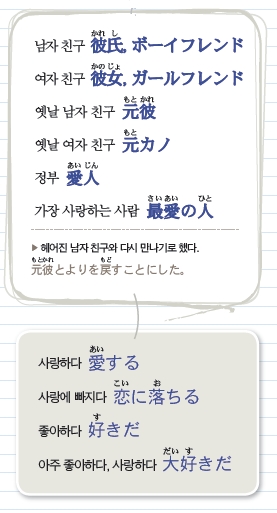 남자 친구 彼氏, ボーイフレンド
かれ し
여자 친구 彼女, ガールフレンド
かの じょ
옛날 남자 친구 元彼
もと かれ
옛날 여자 친구 元カノ
もと
정부 愛人
あい じん
가장 사랑하는 사람 最愛の人
さい あい ひと
▶ 헤어진 남자 친구와 다시 만나기로 했다.
元彼とよりを戻すことにした。
もとかれ もど
사랑하다 愛する
あい
사랑에 빠지다 恋に落ちる
こい お
좋아하다 好きだ
す
아주 좋아하다, 사랑하다 大好きだ
だい す